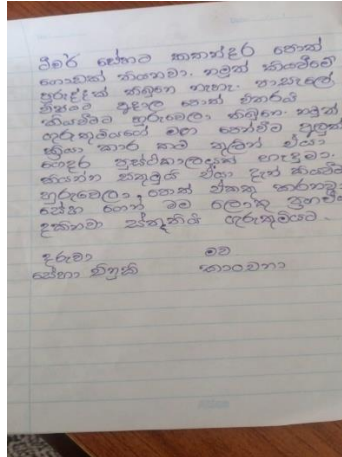 ටීචර් සේහට කතන්දර පොත්
ගොඩක් තියනවා. නමුත් කියවීමේ
පුරුද්දක් තිබුනෙ නැහැ. පාසැලේ
විෂයට අදාල පොත් විතරයි
කියවීමට හුරුවෙලා තිබුනෙ. නමුත්
ගුරුතුමියගේ මඟ පෙන්වීම තුලින්
ක්‍රියා කාර කම් තුලින් එයා
ගෙදර පුස්තකාලයක් හැදුවා.
කියන්න සතුටුයි එයා දැන් කියවීමට
හුරුවෙලා පොත් එකතු කරනවා
සේහා ගැන මම ලොකු ප්‍රගතියක්
දකිනවා ස්තූතියි ගුරුතුමියට.
දරුවා මව
සේහා විනුකි කාංචනා